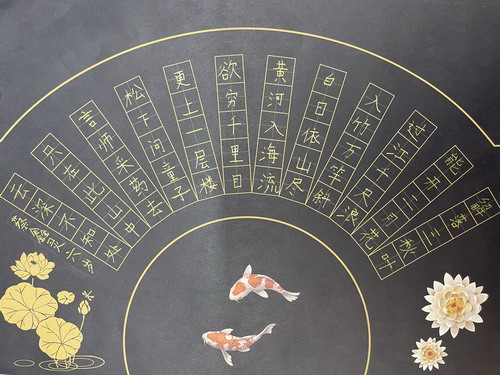 解落三秋叶
能开二月花
过江千尺浪
入竹万竿斜
白日依山尽
黄河入海流
欲穷千里目
更上一层楼
松下问童子
言师采药去
只在此山中
云深不知处
蔡鑫灵六岁